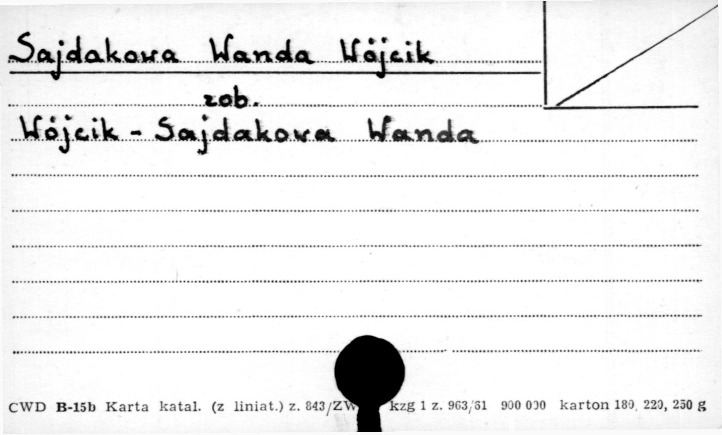 Sajdakowa Wanda Wójcik
zob.
Wójcik - Sajdakowa Wanda
CWD B-15b Karta katal. (z liniat.) z. 843/ZW kzg 1 z. 963/61 900 000 karton 180, 220, 250 g